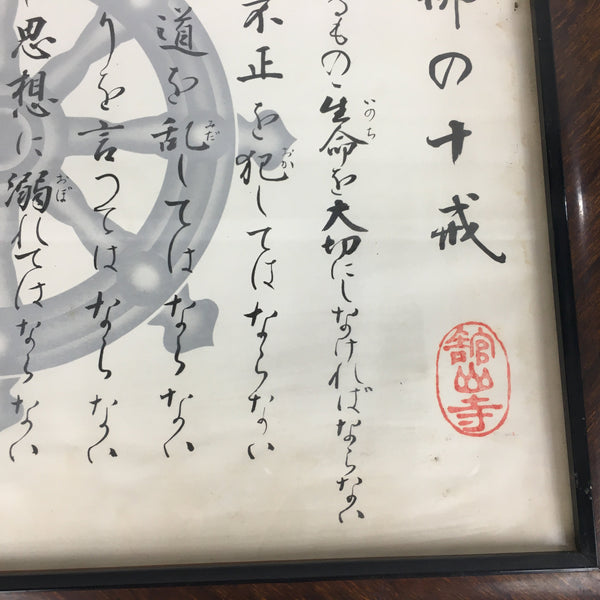 の十戒
舘山寺
るもの生命を大切にしなければならない
いのち
不正を犯してはならない
おか
道を乱してはならない
みだ
りを言つてはならない
思想に溺れてはならない
おぼ